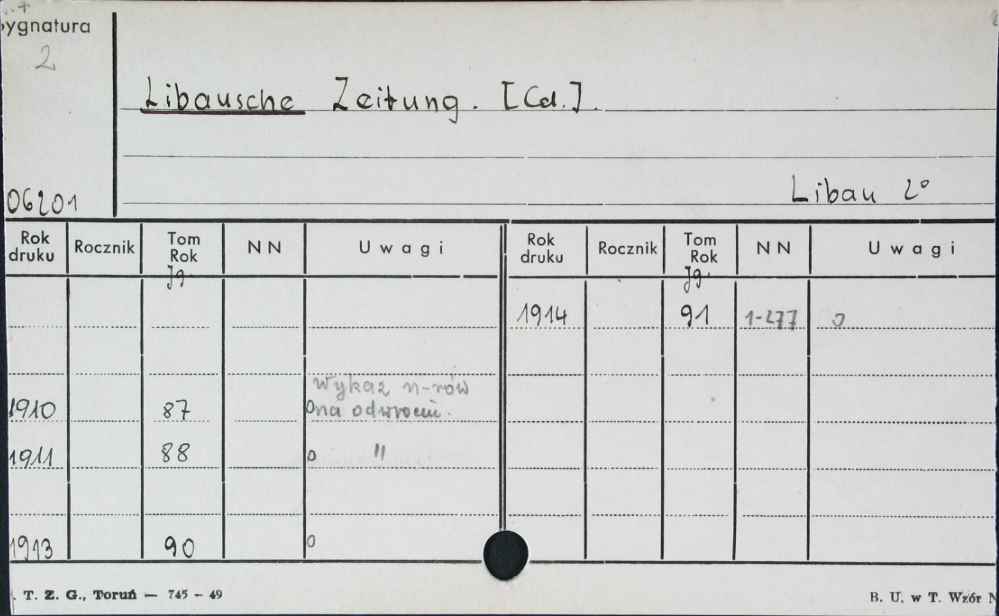 Sygnatura
2
Libausche Zeitung. [Cd.].
06201
Libau 2°
Rok druku Rocznik Tom Rok NN Uwagi Rok druku Rocznik Tom Rok NN Uwagi
Jg. Jg.
1914 91 1-277 0
Wykaz n-rów
1910 87 0 na odwrocie.
1911 88 0 "
1913 90 0
T. Z. G., Toruń — 745 - 49
B. U. w T. Wzór N